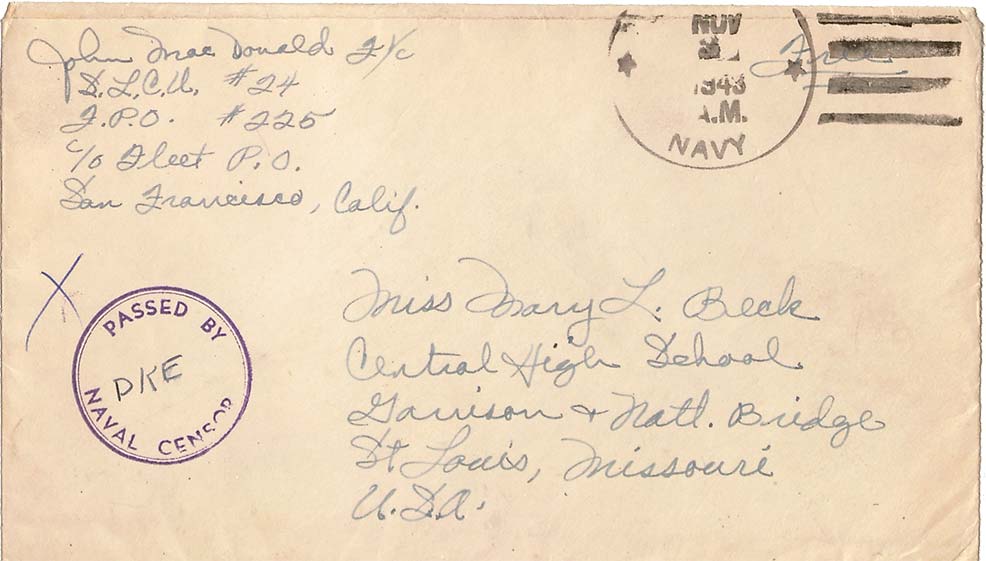 John MacDonald F/c
S.L.C.U. #24
F.P.O. #225
c/o Fleet P.O.
San Francisco, Calif.
NOV
1943
A.M.
NAVY
Free
X
PASSED BY
DKE
NAVAL CENSOR
Miss Mary L. Beck
Central High School
Garrison + Natl. Bridge
St Louis, Missouri
U.S.A.